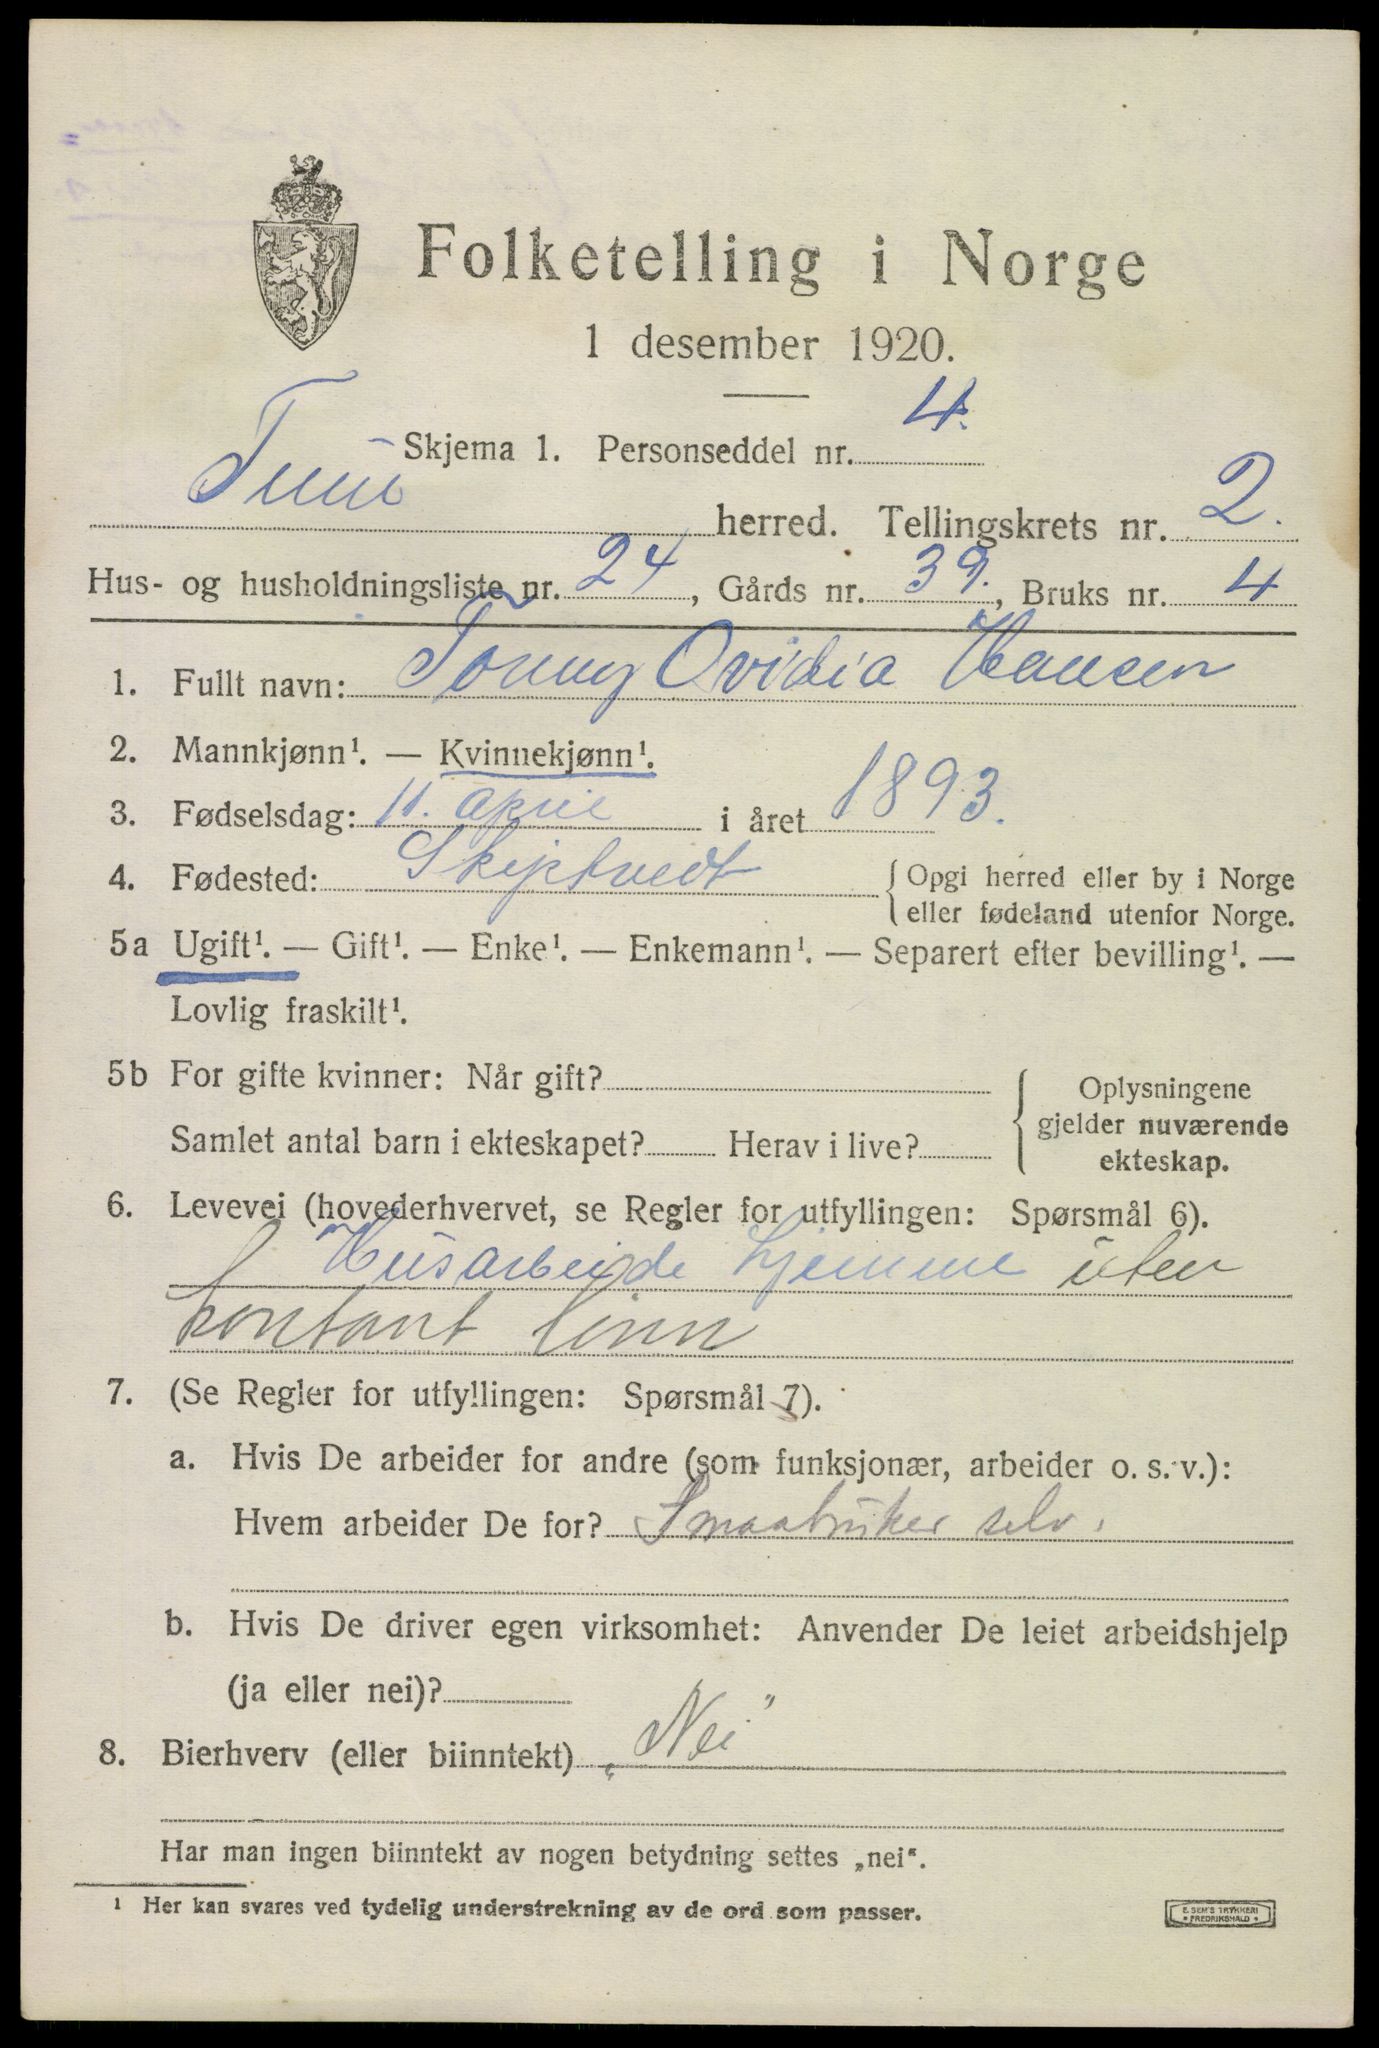 Folketelling i Norge
1 desember 1920.
Skjema 1. Personseddel nr. 4.
Tune herred. Tellingskrets nr. 2.
Hus- og husholdningsliste nr. 24, Gårds nr. 39., Bruks nr. 4
1. Fullt navn: Tonny Ovidia Hansen
2. Mannkjønn¹. — Kvinnekjønn¹.
3. Fødselsdag: 11. april i året 1893.
4. Fødested: Skiptvedt { Opgi herred eller by i Norge
eller fødeland utenfor Norge.
5a Ugift¹. — Gift¹. — Enke¹. — Enkemann¹. — Separert efter bevilling¹. —
Lovlig fraskilt¹.
5b For gifte kvinner: Når gift?
Samlet antal barn i ekteskapet? Herav i live?
{ Oplysningene
gjelder nuværende
ekteskap.
6. Levevei (hovederhvervet, se Regler for utfyllingen: Spørsmål 6).
Husarbeide hjemme uten
kontant lönn
7. (Se Regler for utfyllingen: Spørsmål 7).
a. Hvis De arbeider for andre (som funksjonær, arbeider o. s. v.):
Hvem arbeider De for? Smaabruker selv.
b. Hvis De driver egen virksomhet: Anvender De leiet arbeidshjelp
(ja eller nei)?
8. Bierhverv (eller biinntekt) „Nei"
Har man ingen biinntekt av nogen betydning settes „nei".
¹ Her kan svares ved tydelig understrekning av de ord som passer.
E. SEM'S TRYKKERI
• FREDRIKSHALD •